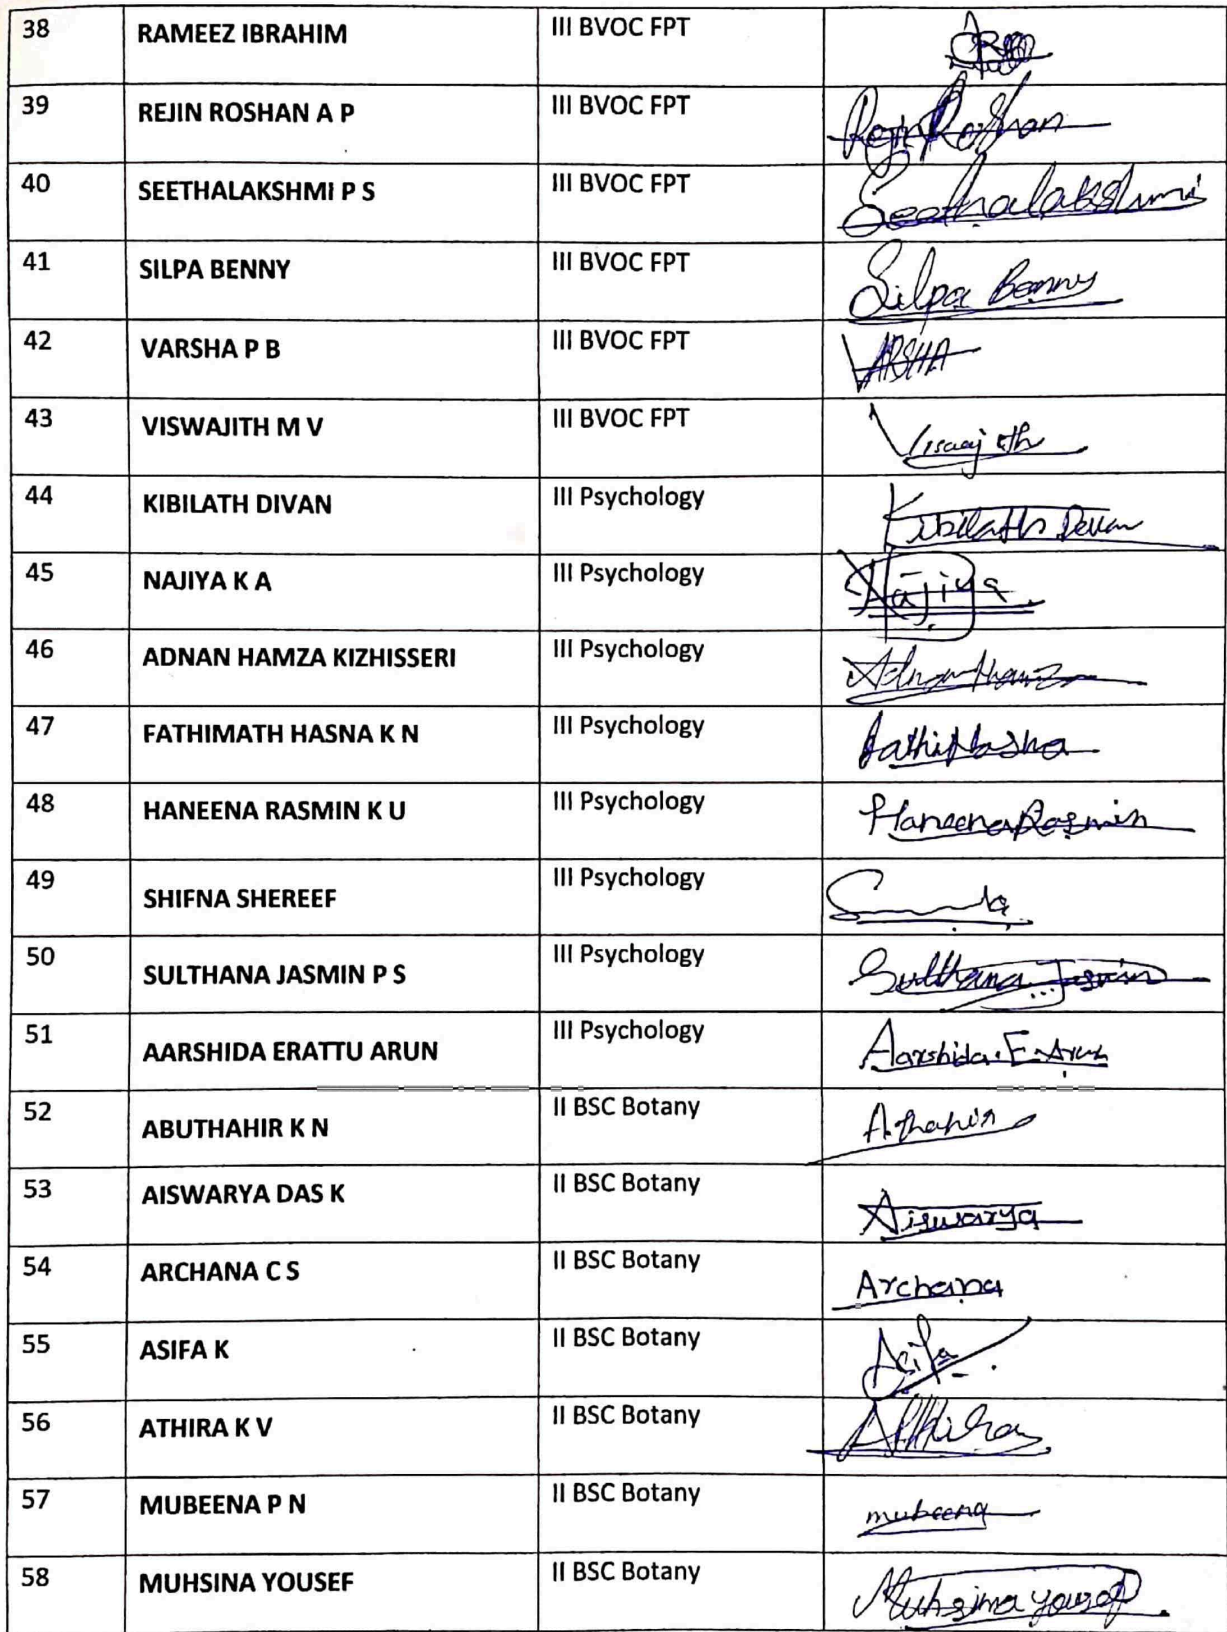 38 RAMEEZ IBRAHIM III BVOC FPT
39 REJIN ROSHAN A P III BVOC FPT Rejin Roshan
40 SEETHALAKSHMI P S III BVOC FPT Seethalakshmi
41 SILPA BENNY III BVOC FPT Silpa Benny
42 VARSHA P B III BVOC FPT VARSHA
43 VISWAJITH M V III BVOC FPT
44 KIBILATH DIVAN III Psychology Kibilath
45 NAJIYA K A III Psychology Najiya
46 ADNAN HAMZA KIZHISSERI III Psychology Adnan Hamza
47 FATHIMATH HASNA K N III Psychology
48 HANEENA RASMIN K U III Psychology Haneena Rasmin
49 SHIFNA SHEREEF III Psychology
50 SULTHANA JASMIN P S III Psychology Sulthana Jasmin
51 AARSHIDA ERATTU ARUN III Psychology Aarshida. E. Arun
52 ABUTHAHIR K N II BSC Botany
53 AISWARYA DAS K II BSC Botany Aiswarya
54 ARCHANA C S II BSC Botany Archana
55 ASIFA K II BSC Botany Asifa
56 ATHIRA K V II BSC Botany
57 MUBEENA P N II BSC Botany mubeena
58 MUHSINA YOUSEF II BSC Botany Muhsina